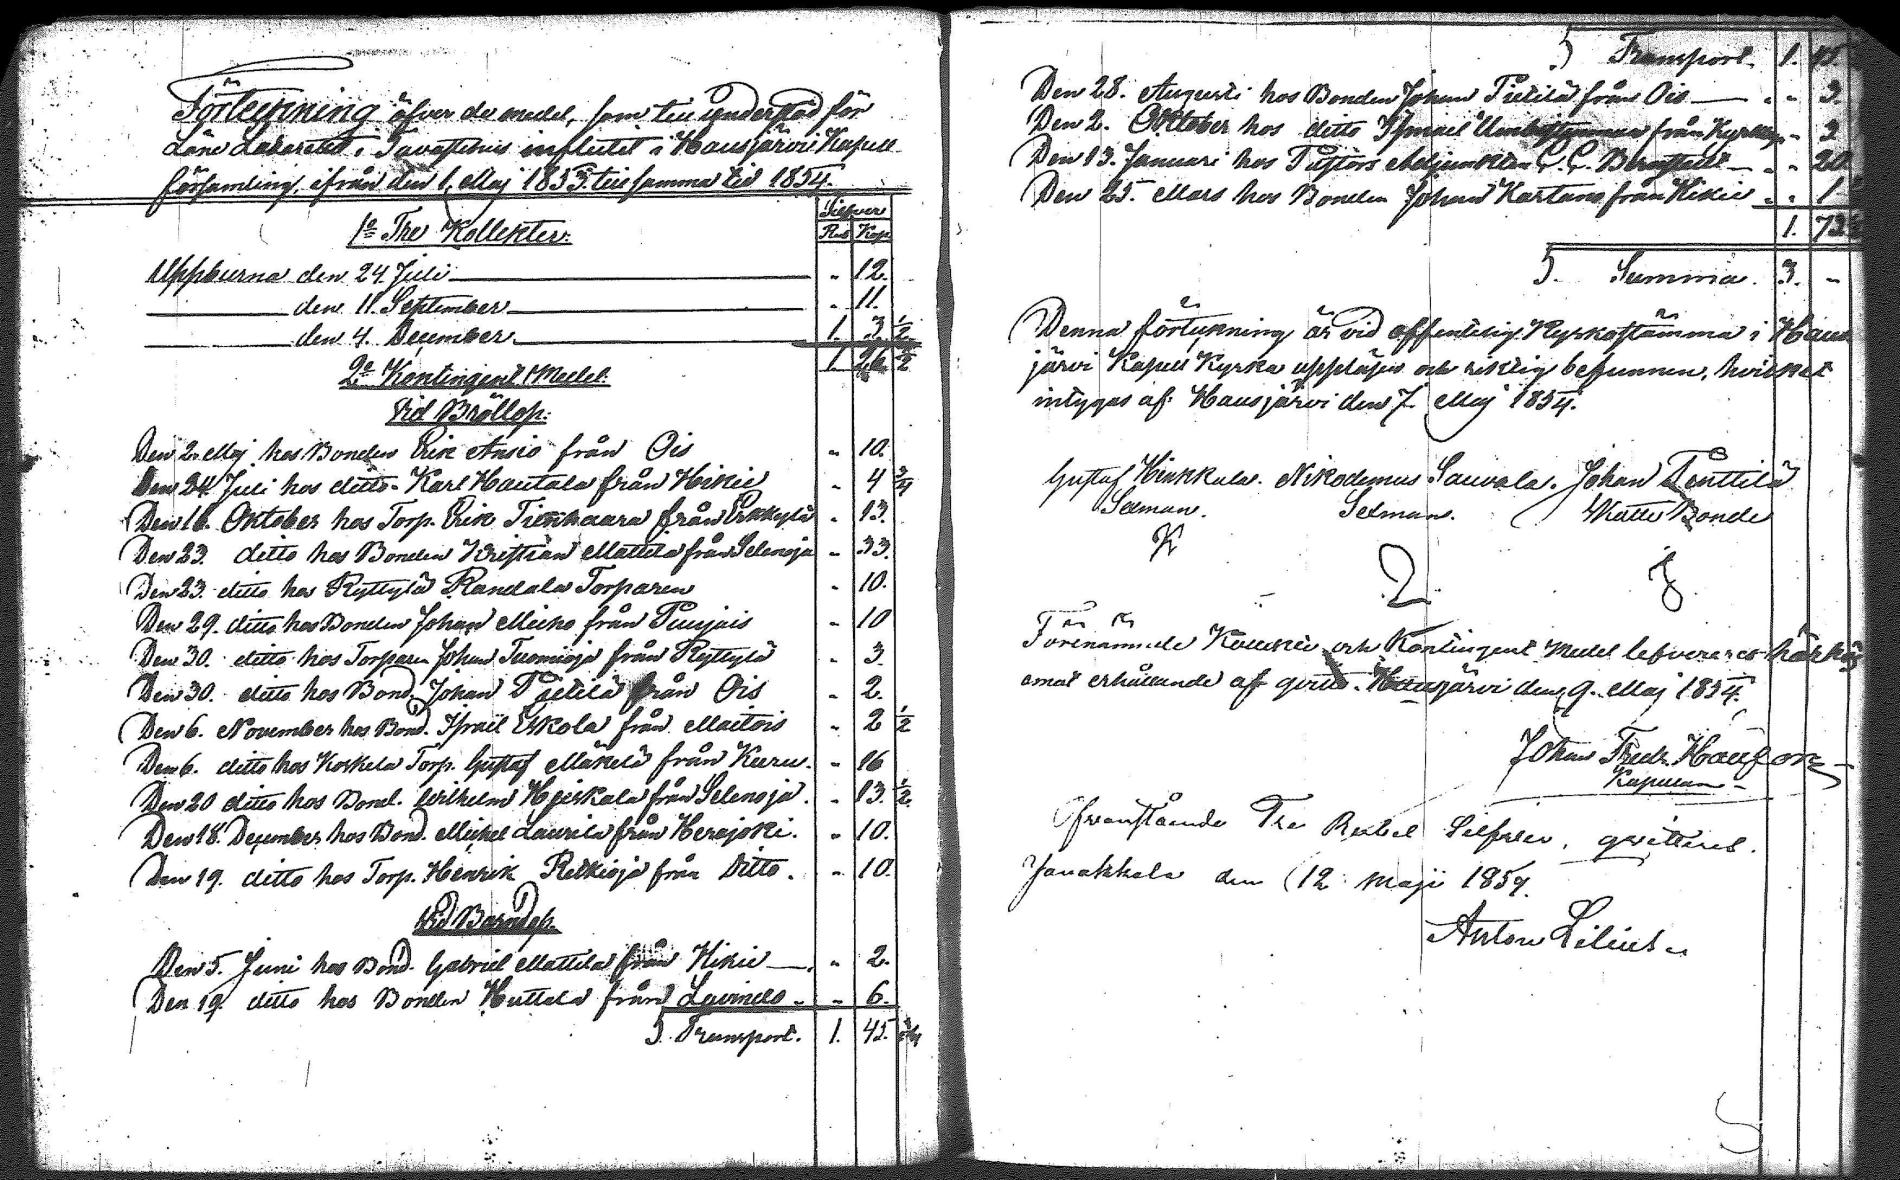 Förteckning öfver de medel, som till understöd för
Läne Lazarettet i Tavastehus influtit i Hausjärvi Kapell
församling, ifrån den 1. Maj 1853. till samma tid 1854.
Silfver
Rub Kop.
1o Tre Kollekter.
Uppburna den 24. Juli " 12.
den 11. September " 11.
den 4. December 1. 3 1/2
1. 26 1/2
2o Kontingent Medel.
Vid Bröllop:
Den 2. Maj hos Bonden Erik Ansio från Ois " 10.
Den 24. Juli hos ditto Karl Hautala från Hikiä " 4 3/4
Den 16. Oktober hos Torp. Erik från Erkkylä " 13.
Den 23. ditto hos Bonden Kristian Mattila från Selenoja " 33.
Den 23. ditto hos Ryttylä Randala Torparen " 10.
Den 29. ditto hos Bonden Johan från " 10
Den 30. ditto hos Torparen Johan Tuomioja från Ryttylä " 3.
Den 30. ditto hos Bond. Johan Pietilä från Ois " 2.
Den 6. November hos Bond. Israil Eskola från Maitois " 2 1/2
Den 6. ditto hos Koskela Torp. Gustaf Mäkelä från Kuru. " 16
Den 20 ditto hos Bond. Wilhelm från Selenoja. " 13. 1/2
Den 18. December hos Bond. Mickel Laurila från Herajoki. " 10.
Den 19. ditto hos Torp. Henrik från Ditto. " 10.
Vid Barndop.
Den 5. Juni hos Bond. Gabriel Mattila från Hikiä " 2.
Den 19. ditto hos Bonden Huttala från " 6.
Transport. 1. 45.
Transport. 1. 45.
Den 28. Augusti hos Bonden Johan Pietilä från Ois " 3.
Den 2. Oktober hos ditto Ismail från
Den 13. Januari hos Pastors Adjunkten C. C. " 20
Den 25. Mars hos Bonden Johan Kartano från Hikiä " 1
1. 73
Summa. 3. -
Denna förteckning är vid offentlig Kyrkostämma i Haus
järvi Kapell Kyrka uppläsen och riktig befunnen, hvilket
intygas af. Hausjärvi den 7. Maj 1854.
Gustaf Hinkkala. Nikodemus Sauvala. Johan Penttilä
Sexman. Sexman. Bonde
Förenämnde Kollekt och Kontingent Medel levereras
emot erhållande af qvitto. Hausjärvi den 9. Maj 1854.
Johan Fredr.
Kapellan
Ofvanstående Tre Rubel Silfver, qvitteras.
Janakkala den 12 Maji 1854.
Anton Lilius